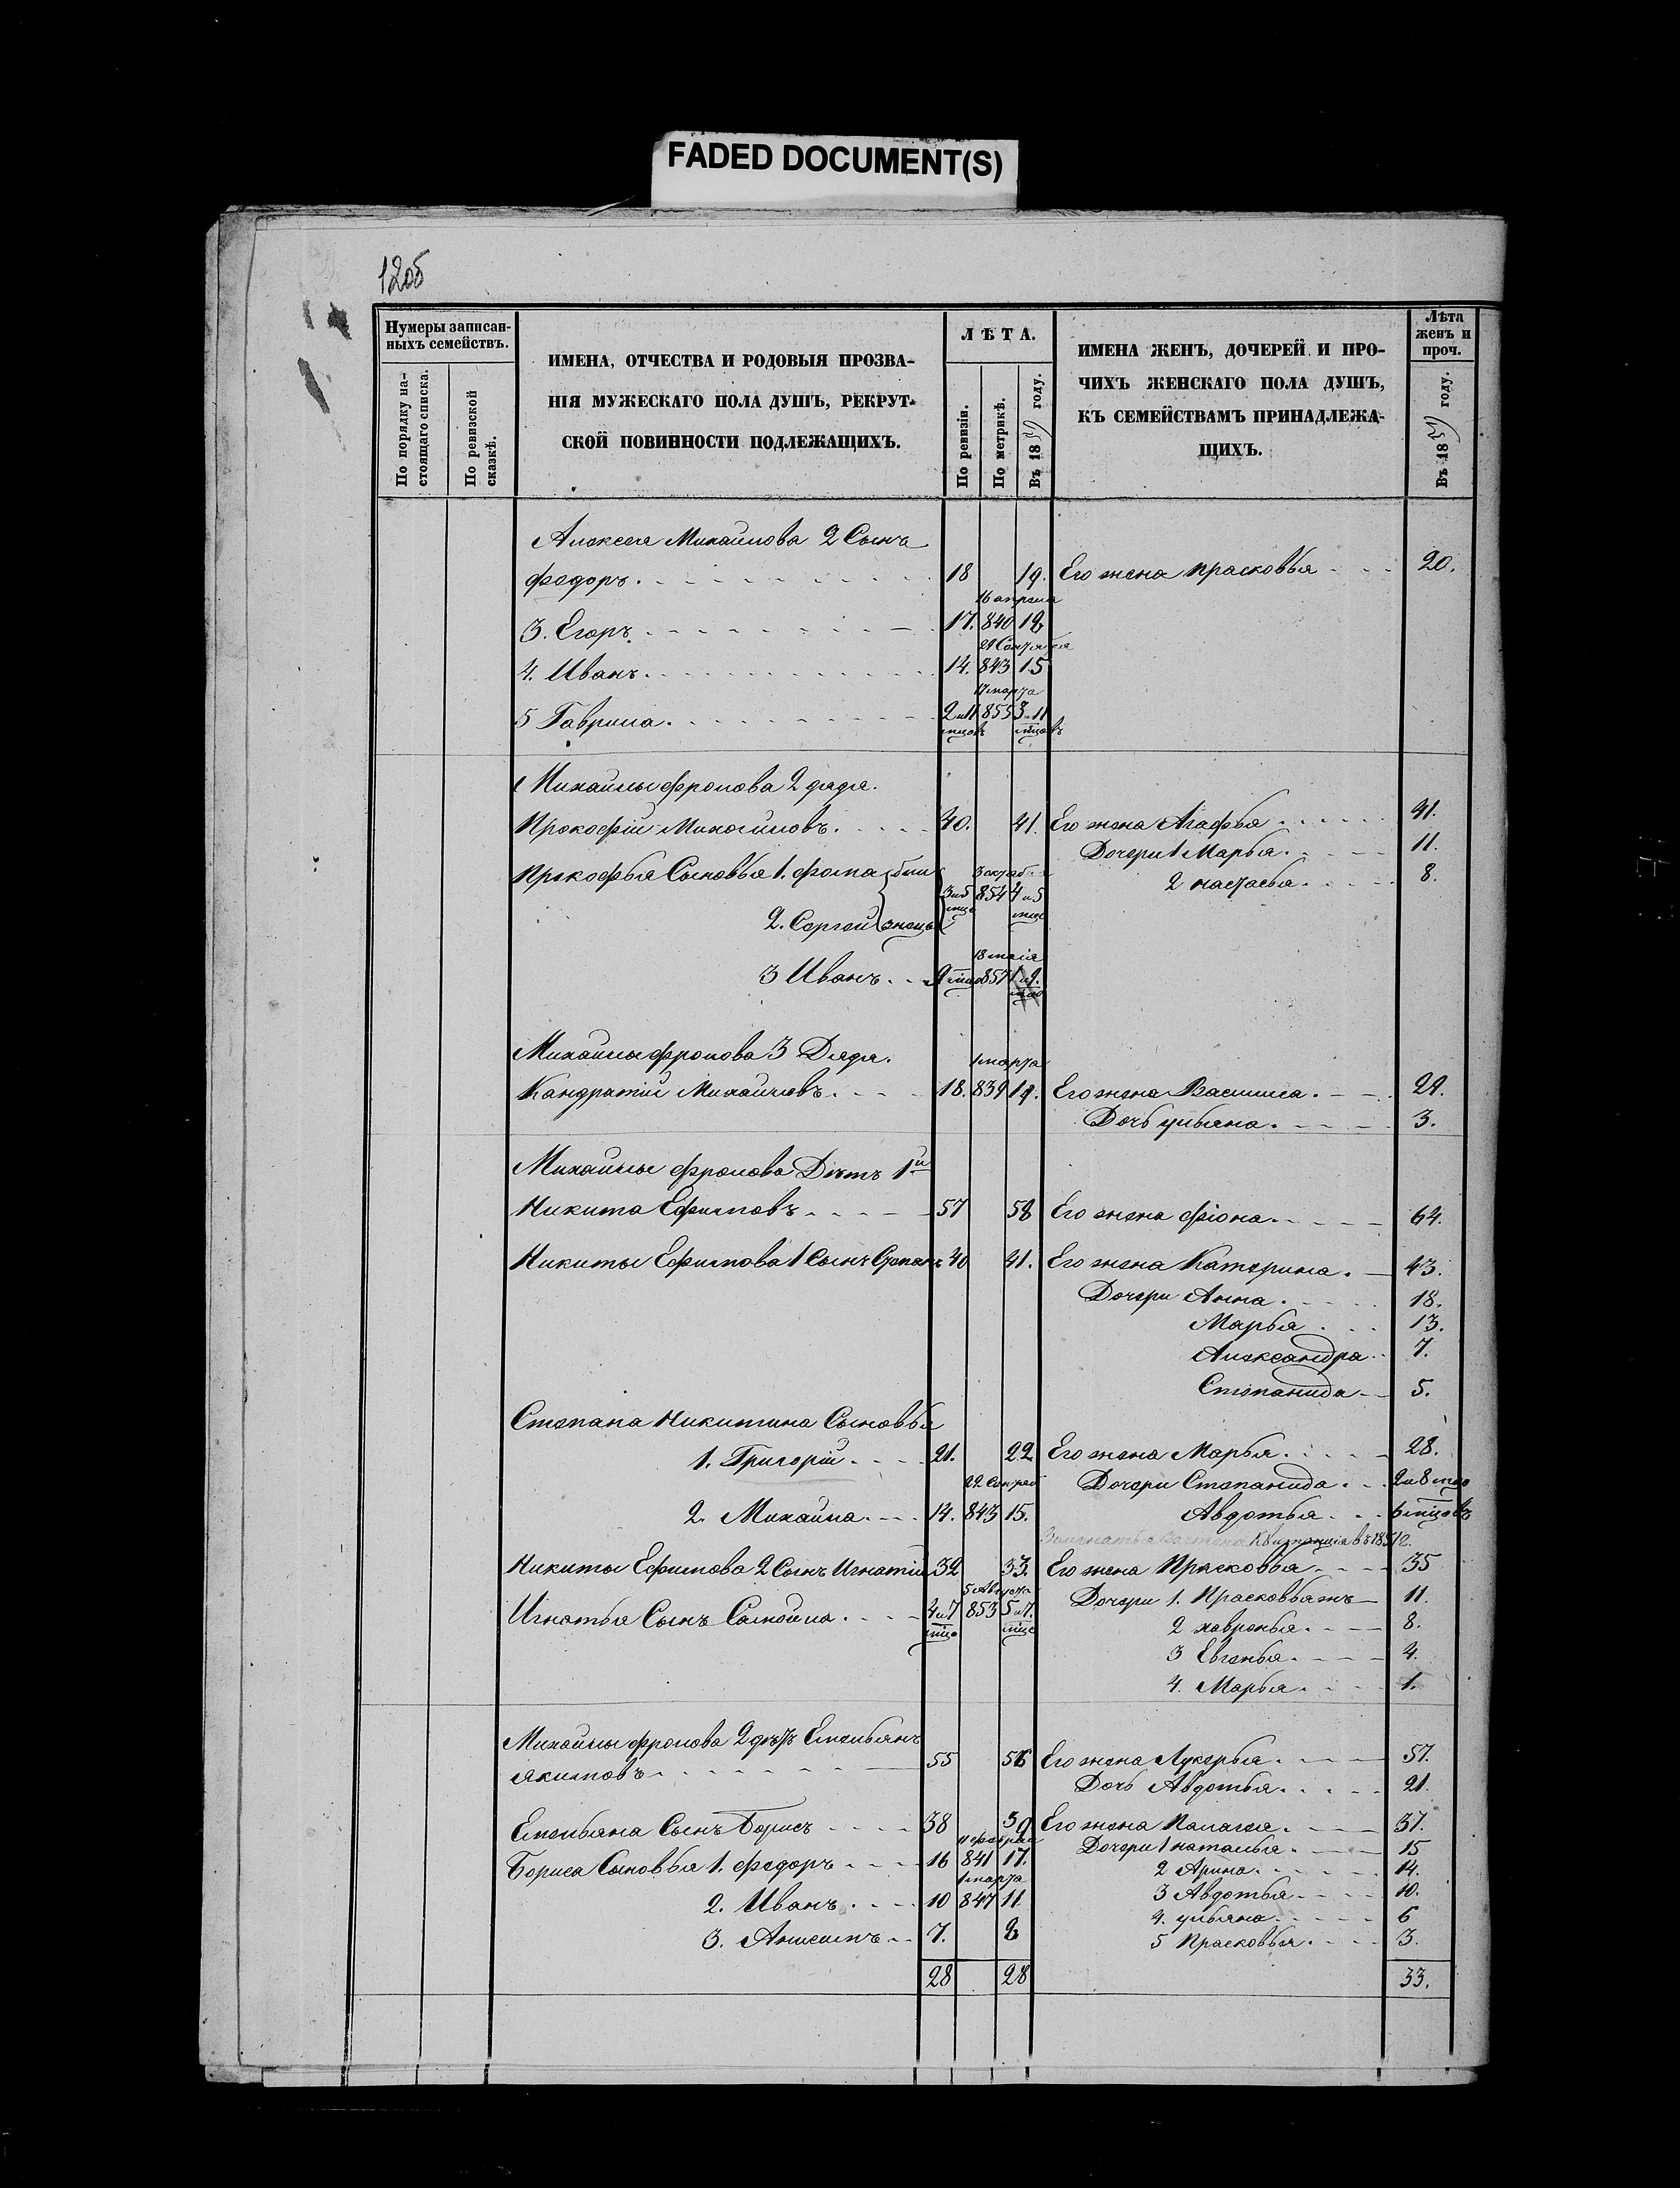 FADED DOCUMENT(S)
12об
Нумеры записан-
ныхъ семействъ.
По порядку на-
стоящаго списка.
По ревизской
сказкѣ.
ИМЕНА, ОТЧЕСТВА И РОДОВЫЯ ПРОЗВА-
НІЯ МУЖЕСКАГО ПОЛА ДУШЪ, РЕКРУТ-
СКОЙ ПОВИННОСТИ ПОДЛЕЖАЩИХЪ.
ЛѢТА.
По ревизіи.
По метрикѣ.
Въ 1859 году.
ИМЕНА ЖЕНЪ, ДОЧЕРЕЙ И ПРО-
ЧИХЪ ЖЕНСКАГО ПОЛА ДУШЪ,
КЪ СЕМЕЙСТВАМЪ ПРИНАДЛЕЖА-
ЩИХЪ.
Лѣта
женъ и
проч.
Въ 1859 году.
Алексея Михайлова 2 Сына
федоръ. 18 19. Его жена прасковья 20.
16 апреля
3. Егоръ 17. 840 18
24 Сентября
4. Иванъ. 14. 843 15
17 марта
5 Гаврила. 2 и 11 мцовъ 855 3 и 11 мцовъ
Михайлы фролова 2 дядя.
Прокофій Михайловъ. 40. 41. Его жена Агафья 41.
Дочери 1 Марья. 11.
Прокофья Сыновья 1. фома бли 3 октяб 2 настасья. 8.
3 и 5 мцо 854 4 и 5 мцо
2. Сергей знецы
18 маія
3 Иванъ. 9 мцо 857 1 и 9. мцо
Михайлы фролова 3 Дядя.
1 марта
Кандратій Михайловъ. 18. 839 19. Его жена Василиса. 24.
Дочь ульяна. 3.
Михайлы фролова Дѣтъ 1й
Никита Ефимовъ 57 58 Его жена фіона. 64.
Никиты Ефимова 1 Сынъ Степанъ 40 41. Его жена Катерина. 43.
Дочери Анна. 18.
Марья 13.
Александра 7.
Степанида 5.
Степана Никитина Сыновья
1. Григорій 21. 22 Его жена Марья. 28.
22 Сентяб Дочери Степанида. 2 и 8 мцо
2. Михайла. 14. 843 15. Авдотья. 6 мцовъ
Квитанція въ 1851 г.
Никиты Ефимова 2 Сынъ Игнатій 32 33. Его жена Прасковья 35
5 Августа
Игнатья Сынъ Самойла. 4 и 7 мцо 853 5 и 7. мцо Дочери 1. Прасковья тъ 11.
2 хавронья. 8.
3 Евгенья. 4.
4. Марья. 1.
Михайлы фролова 2 дѣтъ Емельянъ
Якимовъ 55 56 Его жена Лукерья. 57.
Дочь Авдотья. 21.
Емельяна Сынъ Борисъ 38 39 Его жена Палагея. 37.
11 февраля Дочери 1 наталья. 15
Бориса Сыновья 1. федоръ 16 841 17. 2 Арина. 14.
1 марта
3 Авдотья 10.
2. Иванъ. 10 847 11
4. ульяна 6
3. Анисимъ 7. 8 5 Прасковья. 3.
28 28 33.